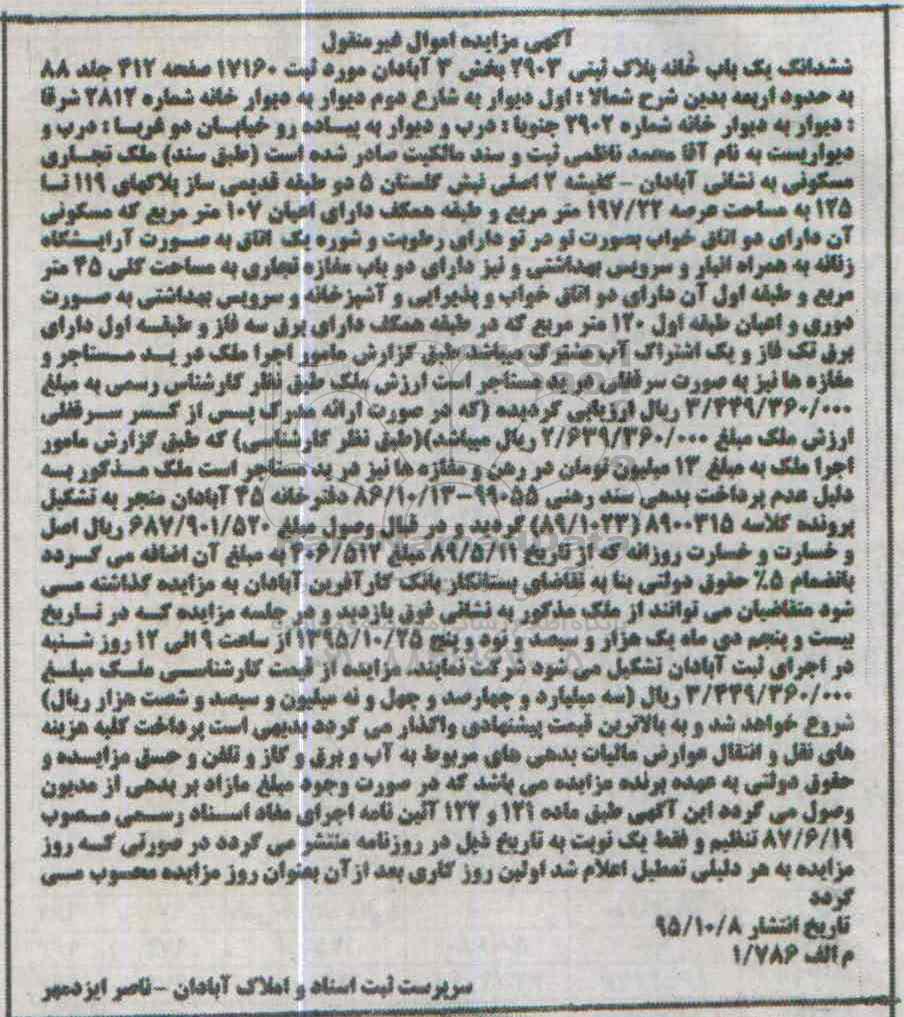 آگهی مزایده اموال غیرمنقول
ششدانگ یک باب خانه پلاک ثبتی ۲۹۰۳ بخش ۳ آبادان مورد ثبت ۱۷۱۶۰ صفحه ۴۱۲ جلد ۸۸
به حدود اربعه بدین شرح شمالا : اول دیوار به شارع دوم دیوار به دیوار خانه شماره ۲۸۱۲ شرقا
: دیوار به دیوار خانه شماره ۲۹۰۲ جنوبا : درب و دیوار به پیاده رو خیابان دو غربا : درب و
دیواریست به نام آقا محمد ناظمی ثبت و سند مالکیت صادر شده است (طبق سند) ملک تجاری
مسکونی به نشانی آبادان - کفیشه ۲ اصلی نبش گلستان ۵ دو طبقه قدیمی ساز پلاکهای ۱۱۹ تا
۱۲۵ به مساحت عرصه ۱۹۷/۲۲ متر مربع و طبقه همکف دارای اعیان ۱۰۷ متر مربع که مسکونی
آن دارای دو اتاق خواب بصورت تو در تو دارای رطوبت و شوره یک اتاق به صورت آرایشگاه
زنانه به همراه انبار و سرویس بهداشتی و نیز دارای دو باب مغازه تجاری به مساحت کلی ۴۵ متر
مربع و طبقه اول آن دارای دو اتاق خواب و پذیرایی و آشپزخانه و سرویس بهداشتی به صورت
دوری و اعیان طبقه اول ۱۲۰ متر مربع که در طبقه همکف دارای برق سه فاز و طبقه اول دارای
برق تک فاز و یک اشتراک آب مشترک میباشد طبق گزارش مامور اجرا ملک در ید مستاجر و
مغازه ها نیز به صورت سرقفلی در ید مستاجر است ارزش ملک طبق نظر کارشناس رسمی به مبلغ
۳/۴۴۹/۳۶۰/۰۰۰ ریال ارزیابی گردیده (که در صورت ارائه مدرک پس از کسر سرقفلی
ارزش ملک مبلغ ۲/۶۳۹/۳۶۰/۰۰۰ ریال میباشد)(طبق نظر کارشناسی) که طبق گزارش مامور
اجرا ملک به مبلغ ۱۳ میلیون تومان در رهن و مغازه ها نیز در ید مستاجر است ملک مذکور به
دلیل عدم پرداخت بدهی سند رهنی ۹۹۰۵۵-۸۶/۱۰/۱۳ دفترخانه ۴۵ آبادان منجر به تشکیل
پرونده کلاسه ۸۹۰۰۳۱۵ (۸۹/۱۰۲۳) گردید و در قبال وصول مبلغ ۶۸۷/۹۰۱/۵۲۰ ریال اصل
و خسارت و خسارت روزانه که از تاریخ ۸۹/۵/۱۱ مبلغ ۴۰۶/۵۱۲ به مبلغ آن اضافه می گردد
بانضمام ۵٪ حقوق دولتی بنا به تقاضای بستانکار بانک کارآفرین آبادان به مزایده گذاشته می
شود متقاضیان می توانند از ملک مذکور به نشانی فوق بازدید و در جلسه مزایده که در تاریخ
بیست و پنجم دی ماه یک هزار و سیصد و نود و پنج ۱۳۹۵/۱۰/۲۵ از ساعت ۹ الی ۱۲ روز شنبه
در اجرای ثبت آبادان تشکیل می شود شرکت نمایند. مزایده از قیمت کارشناسی ملک مبلغ
۳/۴۴۹/۳۶۰/۰۰۰ ریال (سه میلیارد و چهارصد و چهل و نه میلیون و سیصد و شصت هزار ریال)
شروع خواهد شد و به بالاترین قیمت پیشنهادی واگذار می گردد بدیهی است پرداخت کلیه هزینه
های نقل و انتقال عوارض مالیات بدهی های مربوط به آب و برق و گاز و تلفن و حق مزایده و
حقوق دولتی به عهده برنده مزایده می باشد که در صورت وجود مبلغ مازاد بر بدهی از مدیون
وصول می گردد این آگهی طبق ماده ۱۲۱ و ۱۲۲ آئین نامه اجرای مفاد اسناد رسمی مصوب
۸۷/۶/۱۹ تنظیم و فقط یک نوبت به تاریخ ذیل در روزنامه منتشر می گردد در صورتی که روز
مزایده به هر دلیلی تعطیل اعلام شد اولین روز کاری بعد از آن بعنوان روز مزایده محسوب می
گردد
تاریخ انتشار ۹۵/۱۰/۸
م الف ۱/۷۸۶
سرپرست ثبت اسناد و املاک آبادان - ناصر ایزدمهر